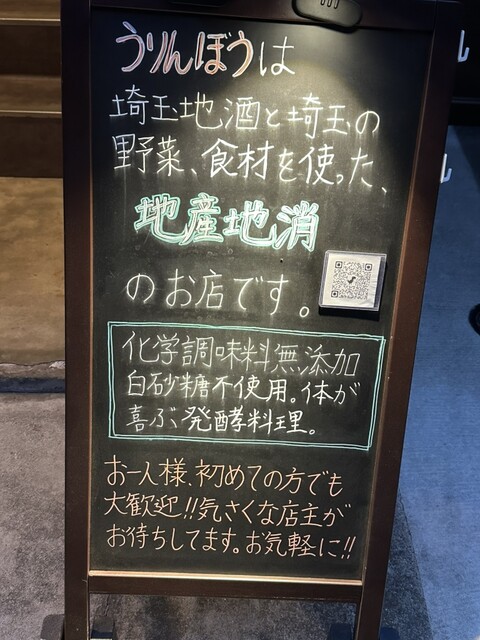 うりんぼうは
埼玉地酒と埼玉の
野菜、食材を使った、
地産地消
のお店です。
化学調味料無添加
白砂糖不使用。体が
喜ぶ発酵料理。
お一人様、初めての方でも
大歓迎!!気さくな店主が
お待ちしてます。お気軽に!!